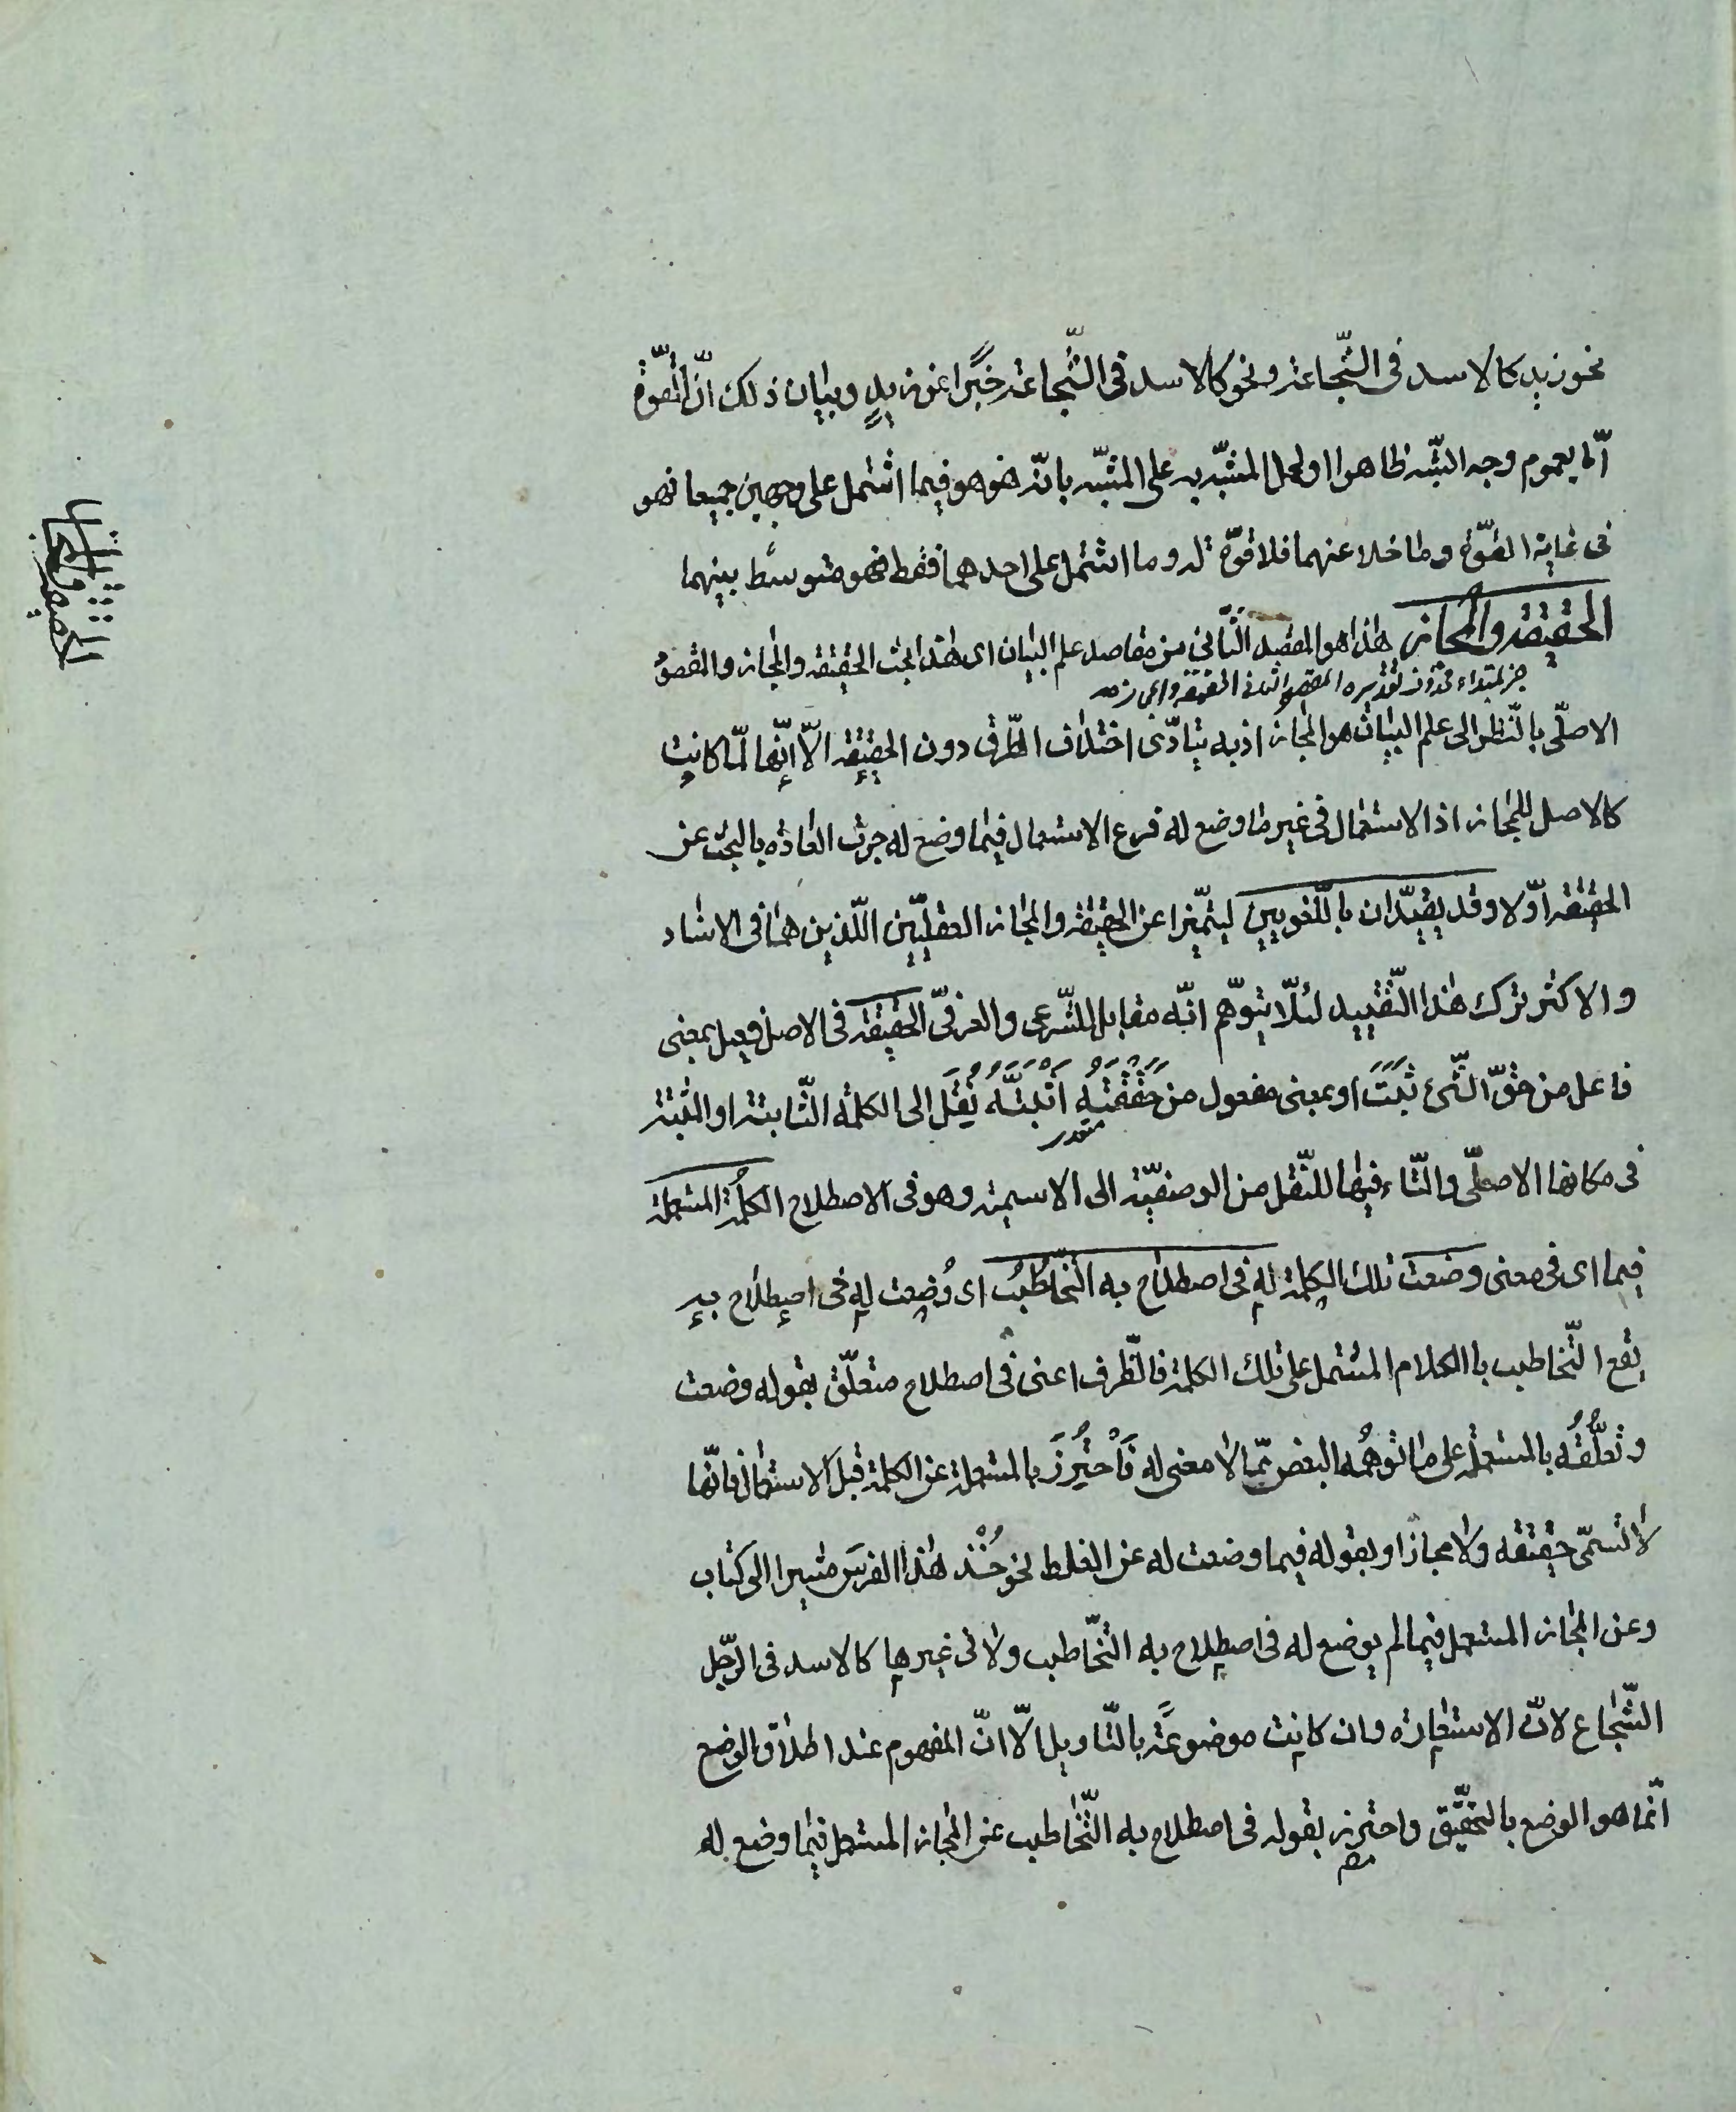 نحو زيد كالاسد فى الشّجاعة ونحو كالاسد فى الشّجاعة خبرًا عن زيدٍ وبيان ذلك انّ القوّة
امّا بعموم وجه الشّبه ظاهرا او لحمل المشبّه به على المشبّه بانّه هو هو فيما اشتمل على وجهين جميعا فهو
فى غاية القوّة وما خلا عنهما فلا قوّة له وما اشتمل على احدهما فقط فهو متوسّط بينهما
الحقيقه والمجاز هذا هو المقصد الثّانى من مقاصد علم البيان اى هذا بحث الحقيقه والمجاز والمقصود
خبر لمبتداء محذوف تقديره المقصد الثانى الحقيقة والمجاز
الاصلّى بالنّظر الى علم البيان هو المجاز اذ به يتادّى اختلاف الطّرق دون الحقيقه الّا انّها لمّا كانت
كالاصل للمجاز اذ الاستعمال فى غير ما وضع له فرع الاستعمال فيما وضع له جرت العاده بالبحث عن
الحقيقه اوّلا وقد يقيّدان باللّغويين ليتميّزا عن الحقيقه والمجاز العقليّين اللّذين هما فى الاسناد
والاكثر ترك هذا التّقييد لئلّا يتوّهم انّه مقابل للشّرعى والعرفىّ الحقيقه فى الاصل فعيل بمعنى
فاعل من حقّ الشّئ ثَبَتَ او بمعنى مفعول من حَقَقْتُهُ اَثْبَتُّهُ نُقِلَ الى الكلمة الثّابتة او المثبتة
فى مكانها الاصلّى والتّاء فيها للنّقل من الوصفيّة الى الاسمية وهو فى الاصطلاح الكلمُة المستعملة
فيما اى فى معنى وضعت تلك الكلمة له فى اصطلاح به التّخاطُبُ اى وُضِعت له فى اصطلاح به
يقع التّخاطب باالكلام المشتمل على تلك الكلمة فالظّرف اعنى فى اصطلاح متعلّق بقوله وضعت
وتعلُّقُه بالمستعملة على ما توهّمُه البعض ممّا لا معنى له فَاحْتُرِزَ بالمستعملة عن الكلمة قبل الاستعمال فانّها
لا تسمّى حقيقه ولا مجازا وبقوله فيما وضعت له عن الغلط نحو خُذْ هذا الفرسَ مشيرا الى كتاب
وعن المجاز المستعمل فيما لم يوضع له فى اصطلاح به التّخاطب ولا فى غيرها كالاسد فى الرّجل
الشّجاع لانّ الاستعاره وان كانت موضوعةً بالتّاويل الّا انّ المفهوم عند اطلاق الوضع
انّما هو الوضع بالتحقيّق واحترز بقوله فى اصطلاح به التّخاطب عن المجاز المستعمل فيما وضع له
الحقيقة والمجاز